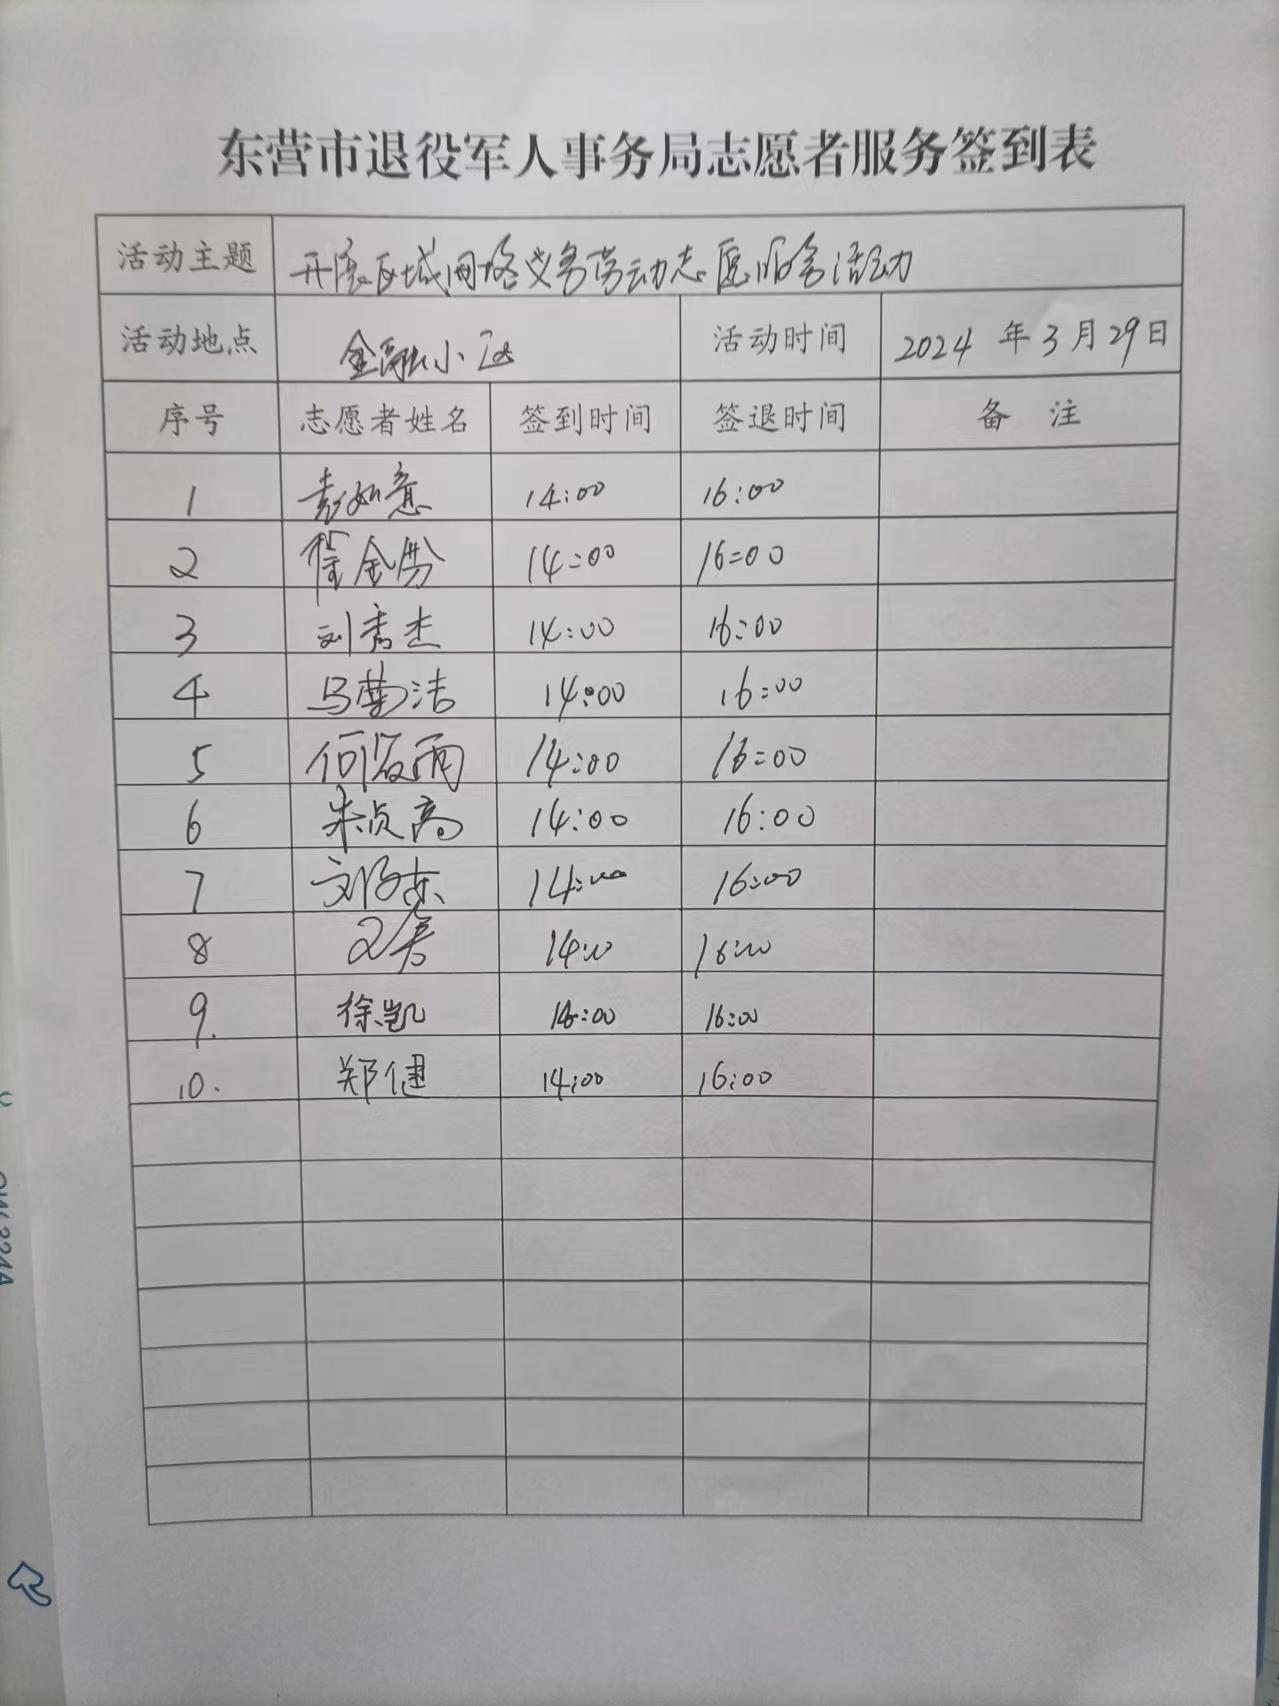 东营市退役军人事务局志愿者服务签到表
活动主题 开展区域网格义务劳动志愿服务活动
活动地点 金融小区 活动时间 2024 年 3 月 29 日
序号 志愿者姓名 签到时间 签退时间 备 注
1 如意 14:00 16:00
2 崔金 14:00 16:00
3 刘秀杰 14:00 16:00
4 马菌洁 14:00 16:00
5 何雨 14:00 16:00
6 朱贞高 14:00 16:00
7 14:00 16:00
8 14:00 16:00
9. 徐凯 14:00 16:00
10. 郑健 14:00 16:00